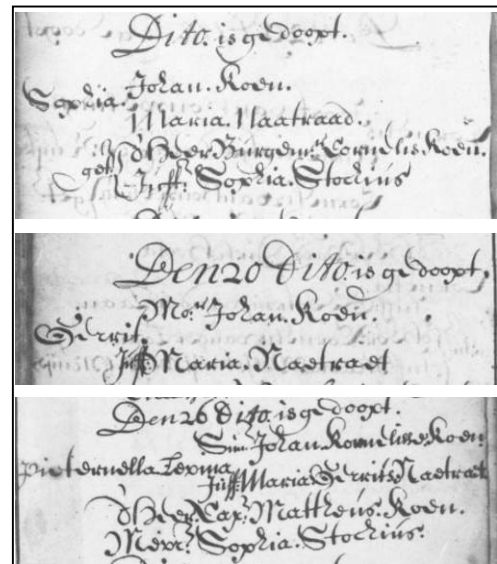 Dito. is gedoopt.
Johan. Koen.
Sophia.
Maria. Naatraad.
dHeer Burgemr. Cornelis. Koen.
get
Juffr. Sophia. Stochius
Den 20 dito. is gedoopt.
Mor. Johan. Koen.
Gerrit.
Juff Maria. Naetraet
Den 26 dito. is gedoopt.
Sinr. Johan Kornelisse Koen
Pieternella Lexina
Juff Maria Gerrits Naetraet
dHeer Capt. Mattheus. Koen.
Sophia. Stochius.